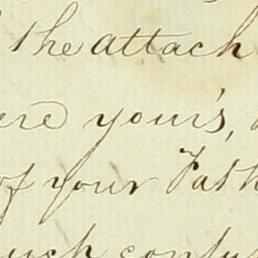 the attach
ere your's,
of your Fath
uch confu